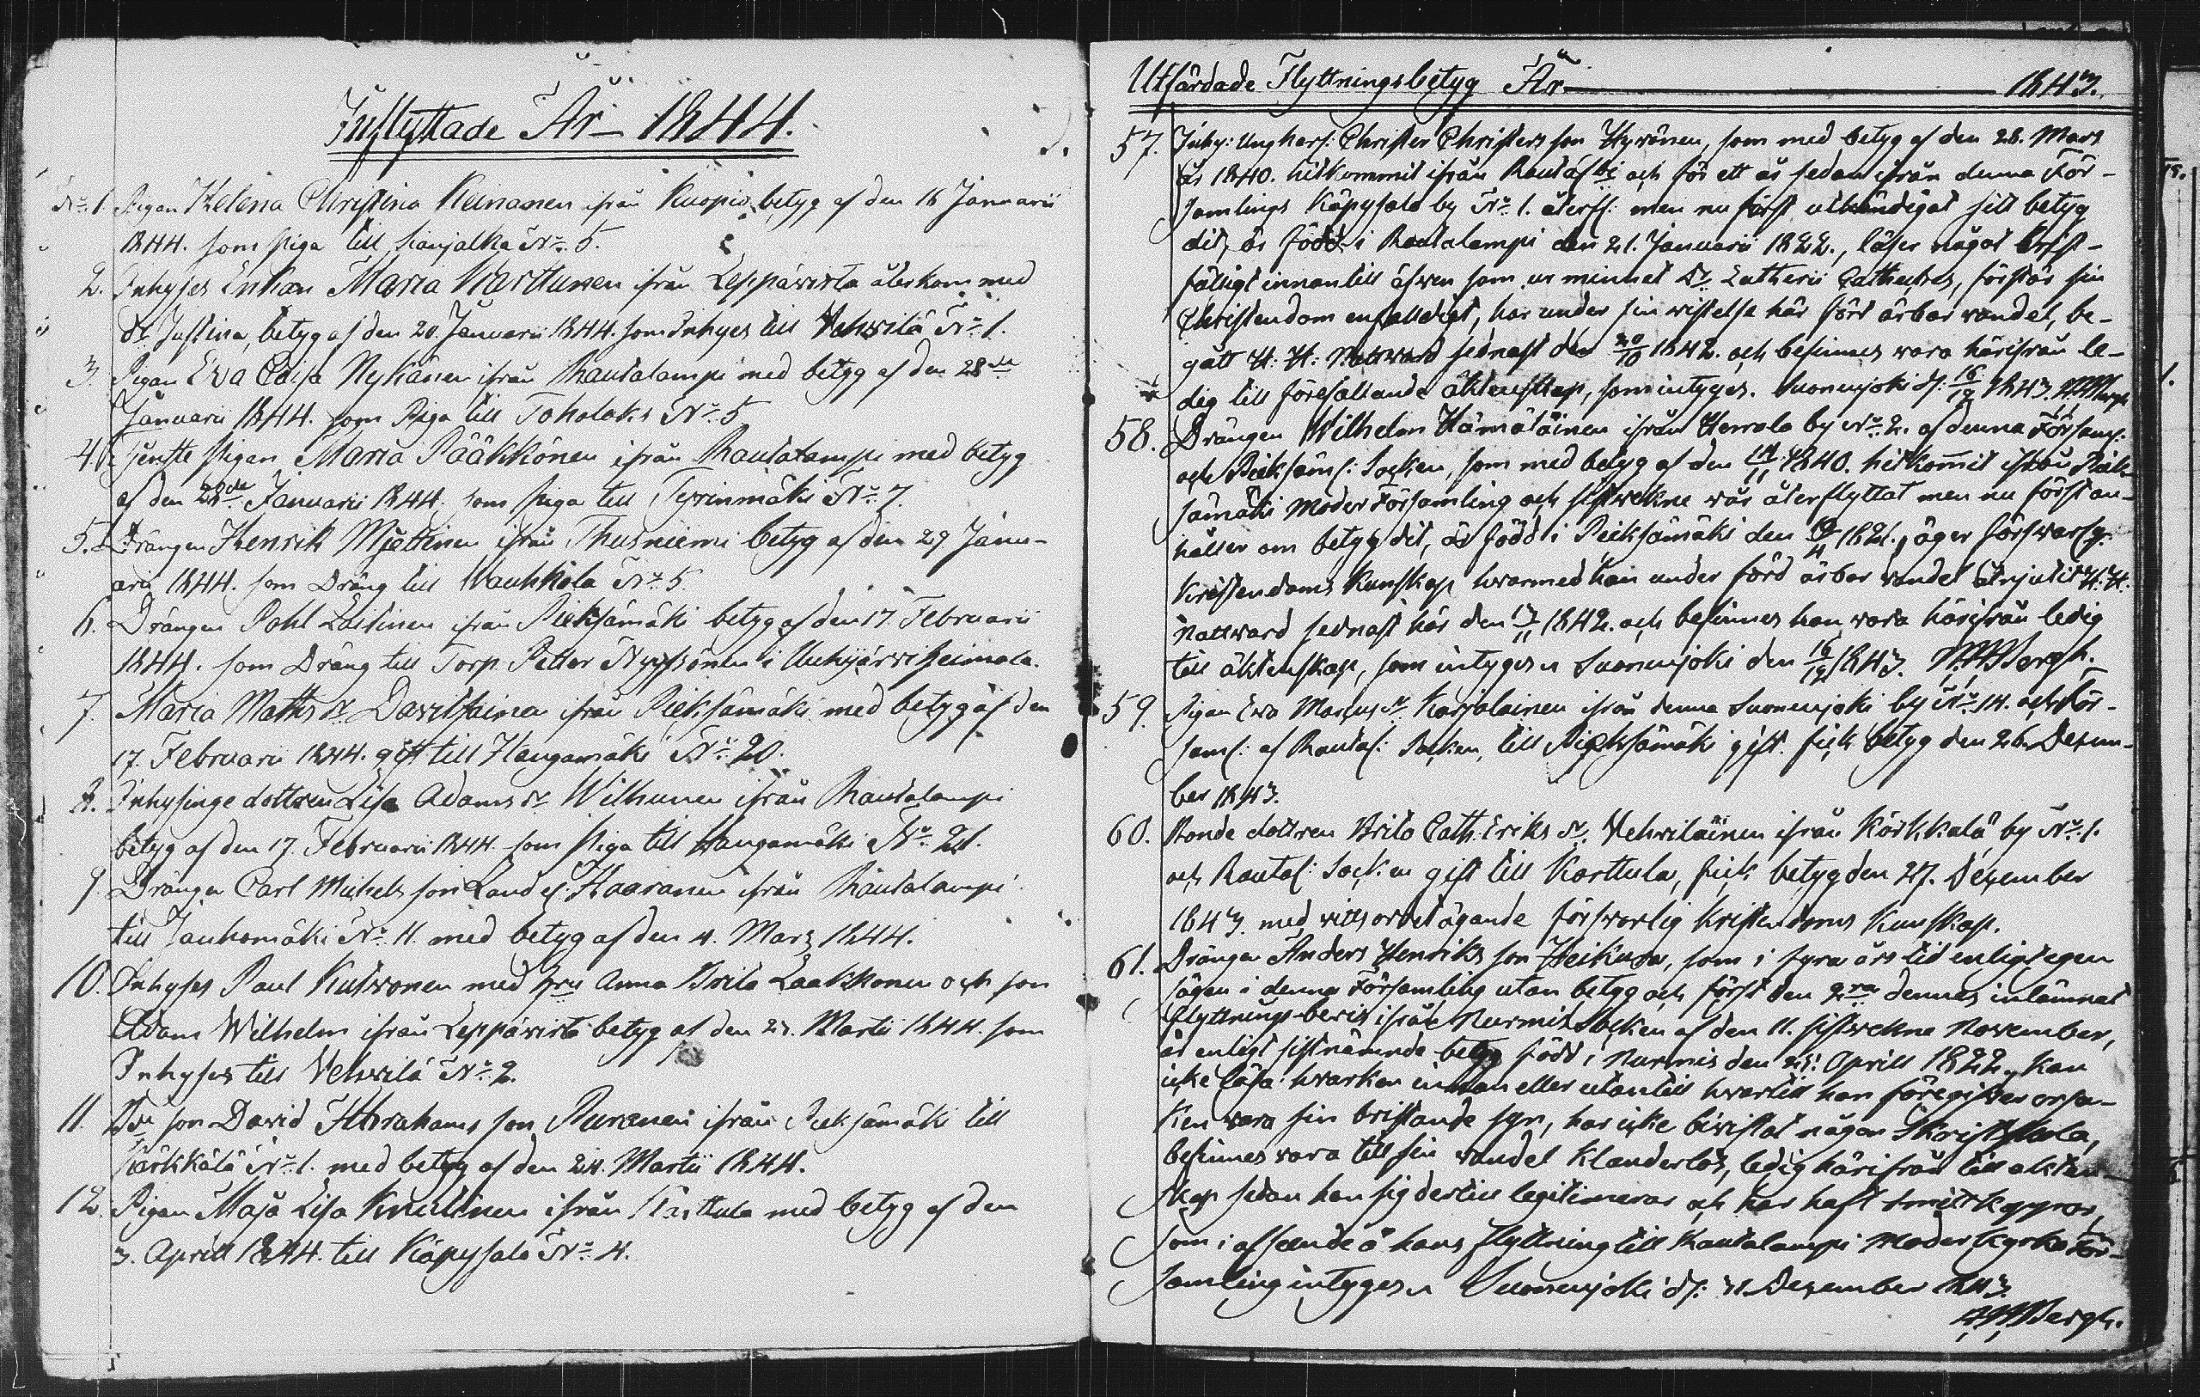 Inflyttade År 1844.
No 1. Pigan Helena Christina Keinanen ifrån Kuopio, betyg af den 16 Januarii
1844. som piga till No 5.
2. Inhyses Enkan Maria Warttunen ifrån Leppävirta återkom med
dr Justina, betyg af den 20. Januarii 1844. som Inhyses till Vehvilä No 1.
3. Pigan Eva Caisa Nykänen ifrån Rautalampi med betyg af den 28de
Januarii 1844. som Piga till Toholaks No 5
4. Tjenste pigan Maria Pääkkönen ifrån Rautalampi med betyg
af den 28de Januarii 1844. som piga till Tyyrinmäki No 7.
5. Drängen Henrik Miettinen ifrån Thusniemi betyg af den 29 Janu-
arii 1844. som Dräng till Vauhkola No 5
6. Drängen Pohl Laitinen ifrån Pieksämäki betyg af den 17. Februarii
1844. som Dräng till Torp. Petter i
7. Maria Matts dr Davidsainen ifrån Pieksämäki med betyg af den
17. Februarii 1844. gift till Haugamäki No 20.
8. Inhysinge dottren Lisa Adams dr Wilhunen ifrån Rautalampi
betyg af den 17. Februarii 1844. som piga till Haugamäki No 21.
9. Drängen Carl Michels son Haaranen ifrån Rautalampi
till Jauhomäki No 11. med betyg af den 4. Mars 1844.
10. Inhyses Paul Kutvonen med hru Anna Brita Laakkonen och son
Adam Wilhelm ifrån Leppävirta betyg af den 23. Martii 1844. som
Inhyses till Vehvilä No 2.
11. son David Abrahams son Puranen ifrån Pieksämäki till
Kärkkälä No 1. med betyg af den 24. Martii 1844.
12. Pigan Maja Lisa ifrån Karttula med betyg af den
3. Aprill 1844. till Käpysalo No 4.
Utfärdade Flyttningsbetyg År 1843.
57. Inhy: Ungkarl: Christer Christers son Hyvönen, som med betyg af den 28. Mars
år 1840. hitkommit ifrån och för ett år sedan ifrån denna För-
samlings Käpysalo by No 1. återfl: men nu först utbändigat sitt betyg
dit, är född i Rautalampi den 21. Januarii 1822., läser något brist-
fäligt innantill äfven som ur minnet Dr Lutherii Catheches, förstår sin
Christendom enfalldigt, har under sin vistelse här fört ärbar vandel, be-
gått H. H. Nattvard sednast den 20/10 1842. och befinnes vara härifrån le-
dig till förefallande äktenskap, som intygas. Suonenjoki d: 16/12 1843. Bergh
58. Drängen Wilhelm Hämäläinen ifrån Herrala by No 2. af denna Församl:
och Pieksäm: Socken, som med betyg af den 14/11 1840. hitkommit ifrån Piek-
sämäki Moder Församling och sistvekne vår återflyttat men nu först an-
håller om betyg dit, är född i Pieksämäki den /4 1821., äger försvarlg:
Kristendoms Kunskap hvarmed han under förd ärbar vandel åtnjutit H. H.
Nattvard sednast här den /11 1842. och befinnes han vara härifrån ledig
till äktenskap, som intygas Suonenjoki den 16/12 1843. Bergh.
59. Pigan Eva Marcus dr Karjalainen ifrån denna Suonenjoki by No 14. och För-
saml: af Rautal: Socken, till Pieksämäki gift. fick betyg den 26. Decem-
ber 1843.
60. Bonde dottren Brita Cath. Eriks dr Vehviläinen ifrån Kärkkälä by No 1.
och Rautal: Socken gift till Karttula, fick betyg den 27. December
1843. med vittsordet ägande försvarlig kristendoms Kunskap.
61. Drängen Anders Henriks son Heikura, som i fyra års tid enligt egen
sägen i denna Församling utan betyg och först den 2ra dennes inlämnat
flyttnings bevis ifrån Nurmis Socken af den 11. sistvekne November,
är enligt sistnämnde betyg född i Nurmis den 25. Aprill 1822., kan
icke läsa hvarken innan eller utantill hvartill han föregifver orsa-
ken vara sin bristande syn, har icke bivistat någon Skriftskola,
befinnes vara till sin vandel klanderlös, ledig härifrån till äkten-
skap sedan han sig dertill legitimerar och har haft smittkoppor,
som i afseende å hans flyttning till Rautalampi Moderkyrko För-
samling intygas Suonenjoki d: 31 December 1843.
Bergh.